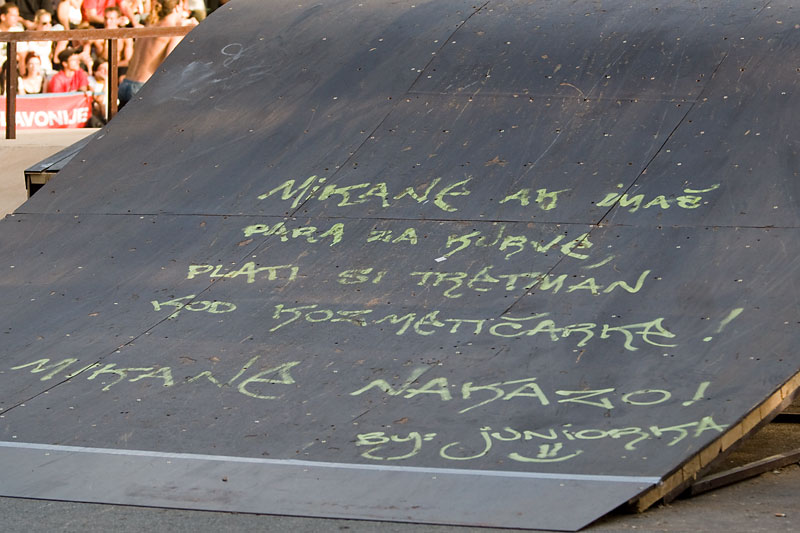 LAVONIJE
MIKANE AK IMAŠ
PARA ZA KURVE,
PLATI SI TRETMAN
KOD KOZMETIČARKE!
MIKANE NAKAZO!
BY: JUNIORKA